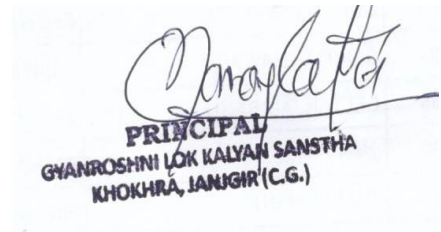 PRINCIPAL
GYANROSHNI LOK KALYAN SANSTHA
KHOKHRA, JANJGIR (C.G.)